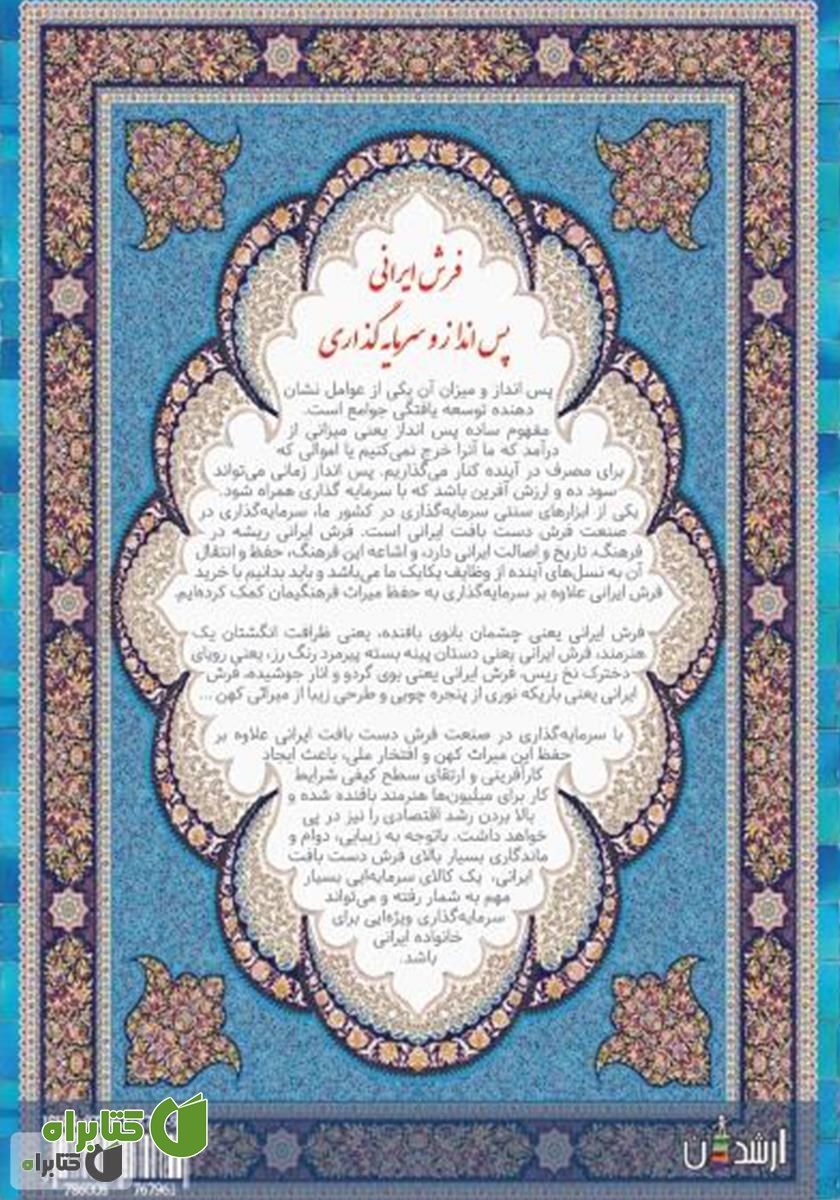 فرش ایرانی
پس انداز و سرمایه گذاری
پس انداز و میزان آن یکی از عوامل نشان
دهنده توسعه یافتگی جوامع است.
مفهوم ساده پس انداز یعنی میزانی از
درآمد که ما آنرا خرج نمی‌کنیم یا اموالی که
برای مصرف در آینده کنار می‌گذاریم. پس انداز زمانی می‌تواند
سود ده و ارزش آفرین باشد که با سرمایه گذاری همراه شود.
یکی از ابزارهای سنتی سرمایه‌گذاری در کشور ما، سرمایه‌گذاری در
صنعت فرش دست بافت ایرانی است. فرش ایرانی ریشه در
فرهنگ، تاریخ و اصالت ایرانی دارد، و اشاعه این فرهنگ، حفظ و انتقال
آن به نسل‌های آینده از وظایف یکایک ما می‌باشد و باید بدانیم با خرید
فرش ایرانی علاوه بر سرمایه‌گذاری به حفظ میراث فرهنگیمان کمک کرده‌ایم.
فرش ایرانی یعنی چشمان بانوی بافنده، یعنی ظرافت انگشتان یک
هنرمند، فرش ایرانی یعنی دستان پینه بسته پیرمرد رنگ رز، یعنی رویای
دخترک نخ ریس، فرش ایرانی یعنی بوی گردو و انار جوشیده، فرش
ایرانی یعنی باریکه نوری از پنجره چوبی و طرحی زیبا از میراثی کهن ...
با سرمایه‌گذاری در صنعت فرش دست بافت ایرانی علاوه بر
حفظ این میراث کهن و افتخار ملی، باعث ایجاد
کارآفرینی و ارتقای سطح کیفی شرایط
کار برای میلیون‌ها هنرمند بافنده شده و
بالا بردن رشد اقتصادی را نیز در پی
خواهد داشت. باتوجه به زیبایی، دوام و
ماندگاری بسیار بالای فرش دست بافت
ایرانی، یک کالای سرمایه‌ایی بسیار
مهم به شمار رفته و می‌تواند
سرمایه‌گذاری ویژه‌ایی برای
خانواده ایرانی
باشد.
کتابراه
کتابراه
ارشدن